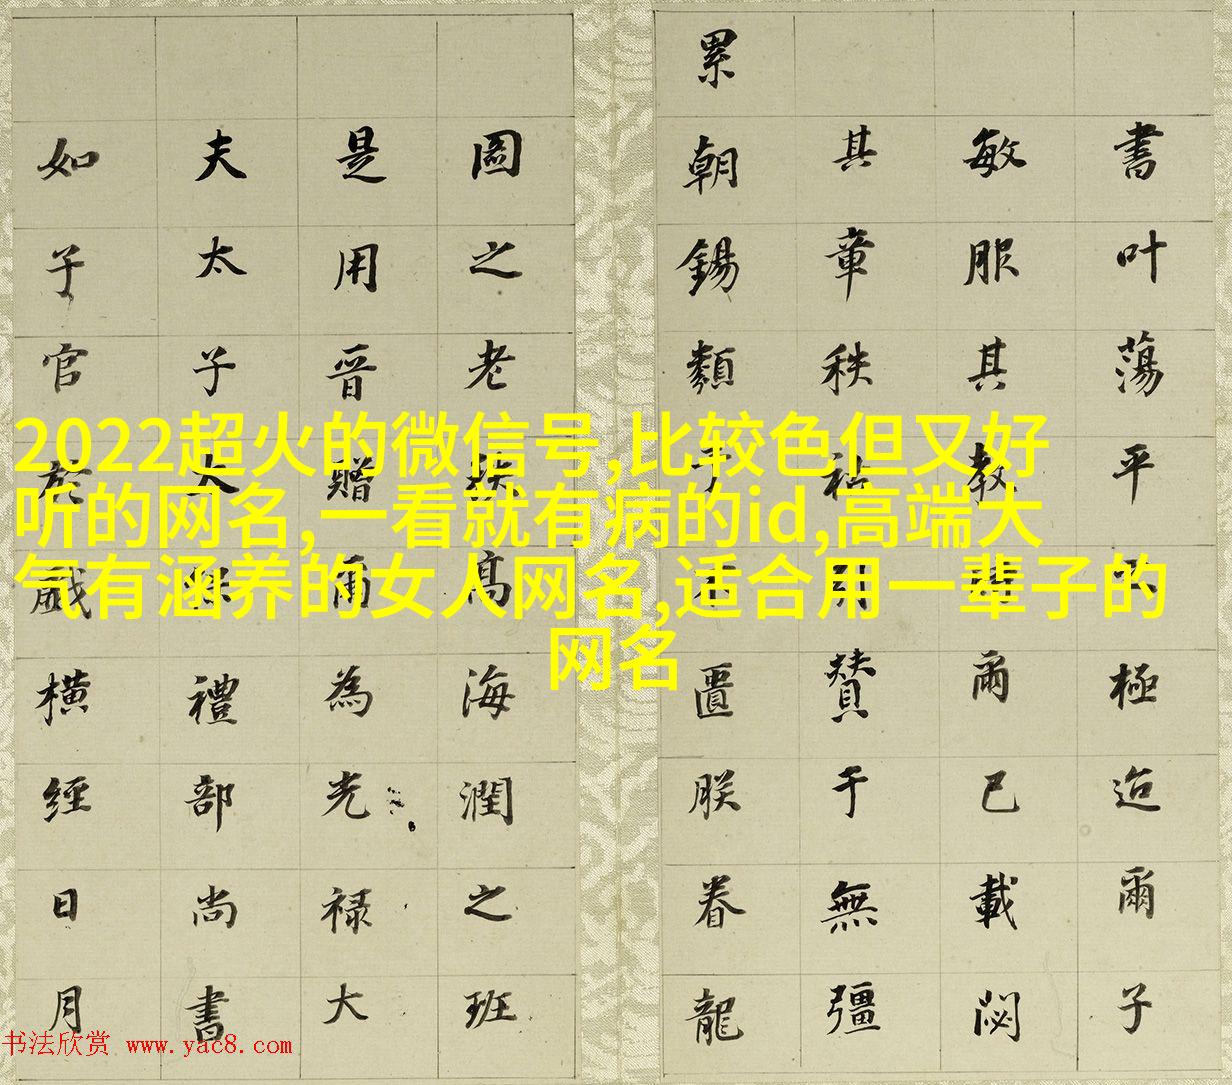 2022超火的微信号,比较色但又好
听的网名,一看就有病的id,高端大
气有涵养的女人网名,适合用一辈子的
网名
書叶蕩平極迨爾子
敏服其教爾已載閟
其章秩祜贊于無彊
累朝錫類于不匱朕眷龍
圖之老扶高海潤之班
是用晋贈爾為光禄大
夫太子太保禮部尚書
如子官於戲橫經日月
书法欣赏 www.yac8.com